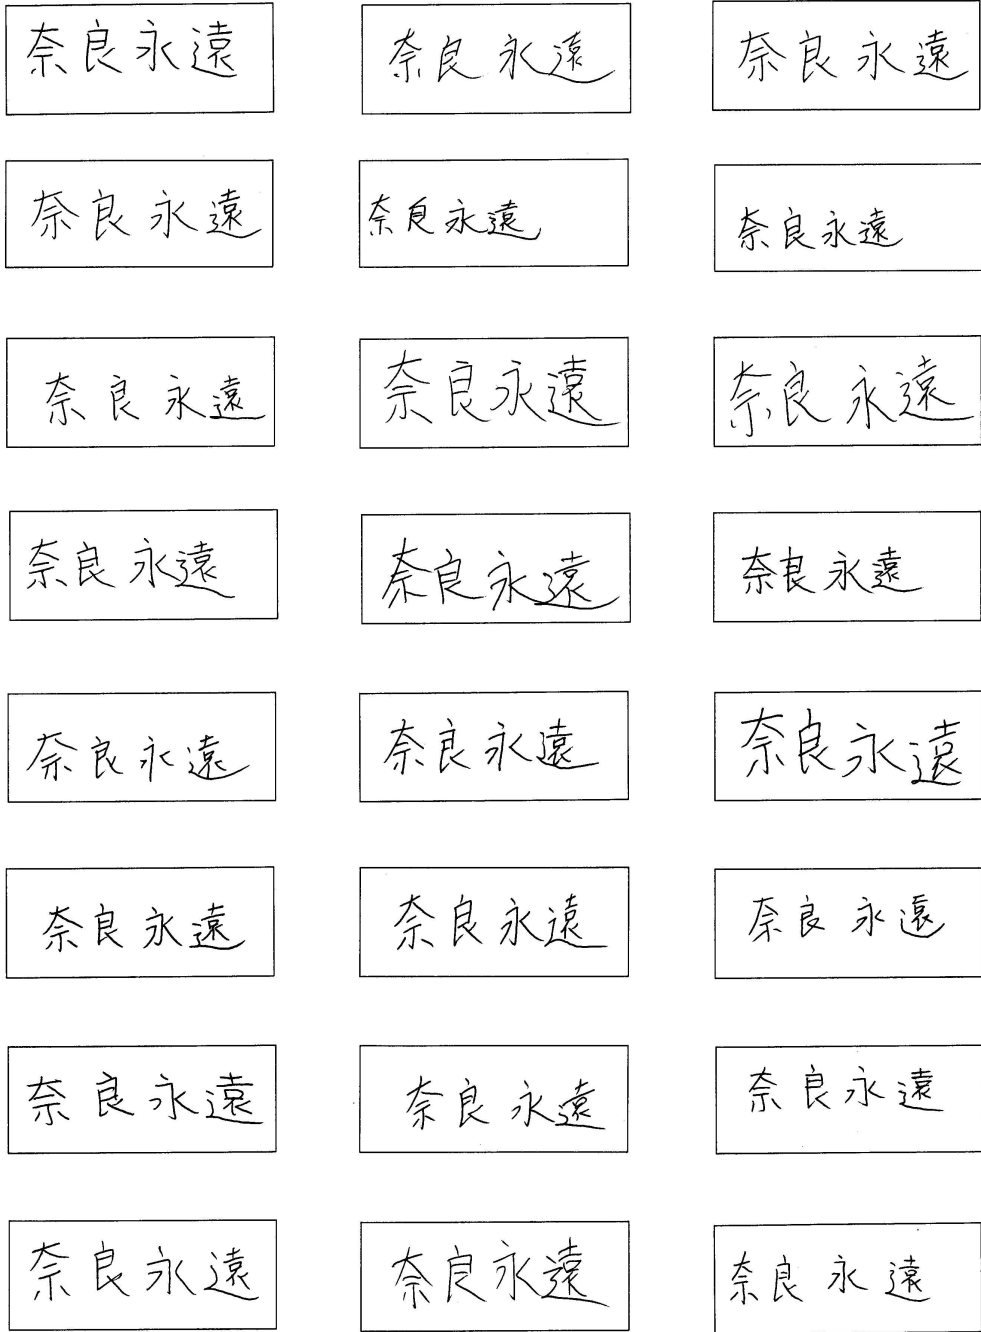 奈良永遠 奈良永遠 奈良永遠
奈良永遠 奈良永遠 奈良永遠
奈良永遠 奈良永遠 奈良永遠
奈良永遠 奈良永遠 奈良永遠
奈良永遠 奈良永遠 奈良永遠
奈良永遠 奈良永遠 奈良永遠
奈良永遠 奈良永遠 奈良永遠
奈良永遠 奈良永遠 奈良永遠